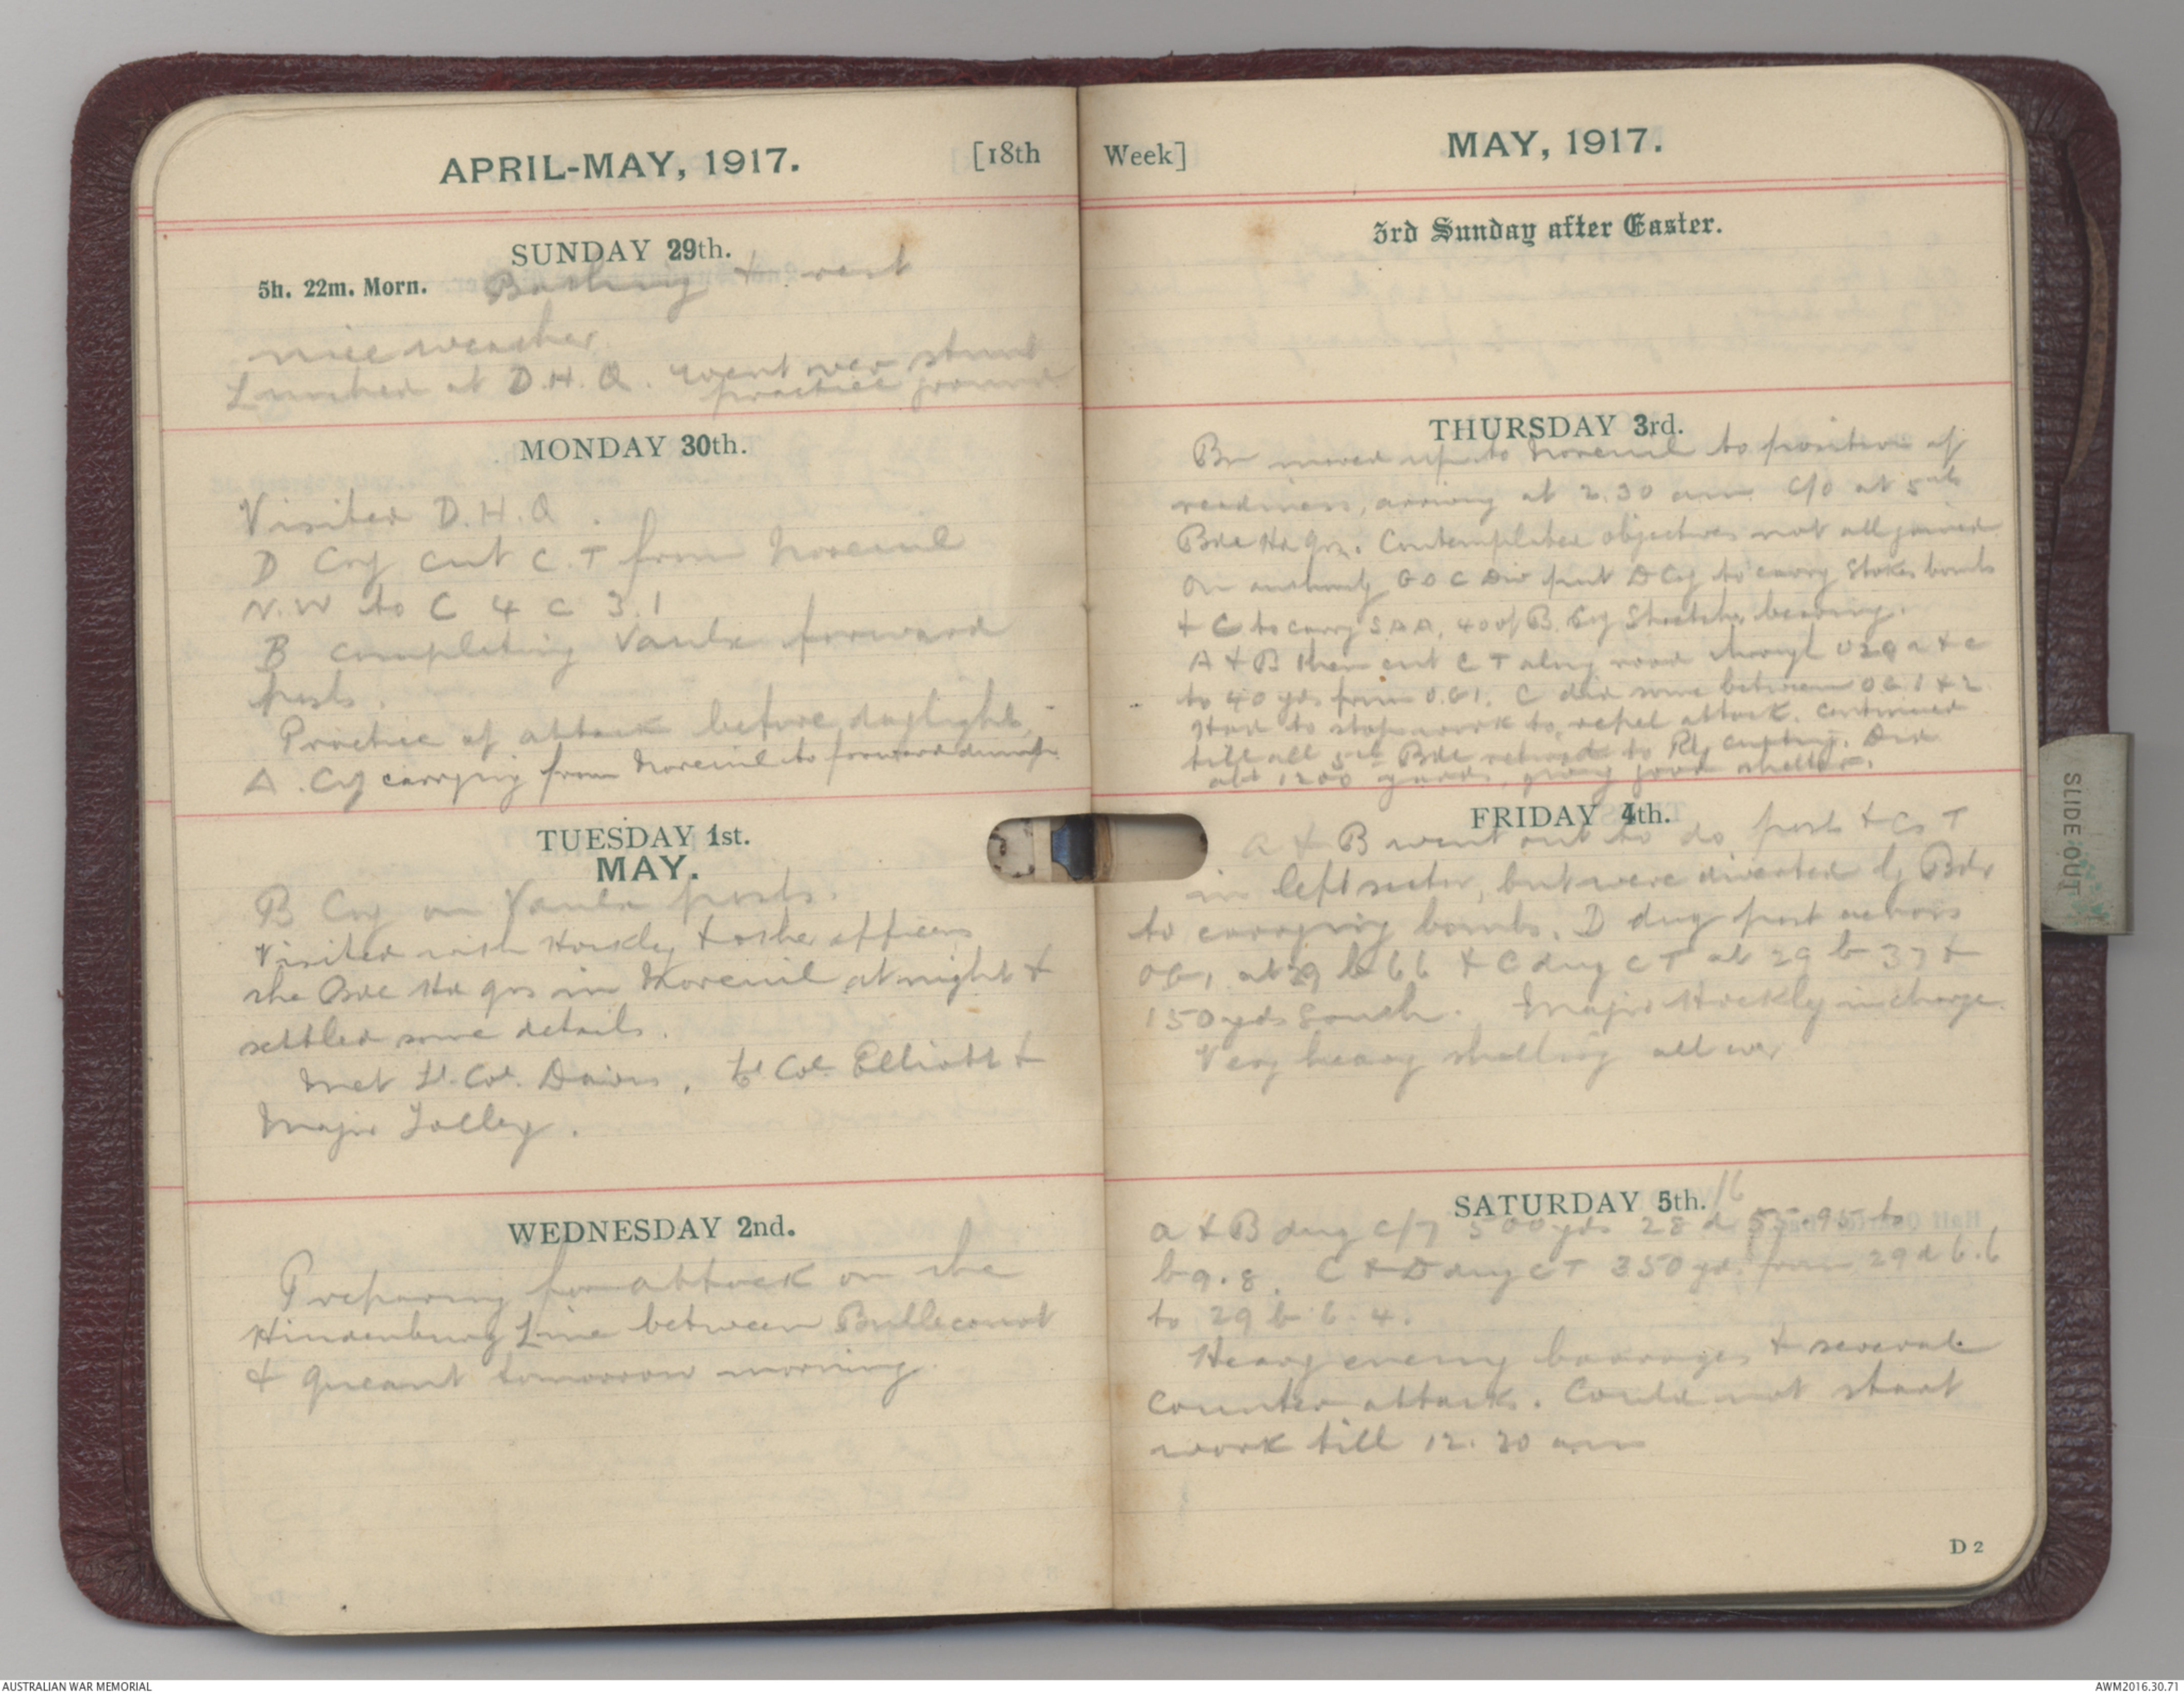 APRIL-MAY, 1917. [18th
SUNDAY 29th.
5h. 22m. Morn. Bathing & rest
nice weather
Lunched at D.H.Q. went over stunt
practice ground
MONDAY 30th.
Visited D.H.Q.
D Coy cut C.T from Noreuil
N.W to C 4 c 3.1
B completing Vaulx forward
posts.
Practice of attack before daylight.
A. Coy carrying from Noreuil to forward dumps
TUESDAY 1st.
MAY.
B Coy on Vaulx posts.
Visited with Hockley & other officers
the Bde Hd qrs in Noreuil at night &
settled some details.
Met Lt. Col. Davis, Lt Col. Elliott &
Major Tolley.
WEDNESDAY 2nd.
Preparing for attack on the
Hindenburg Line between Bullecourt
& Queant tomorrow morning.
Week] MAY, 1917.
3rd Sunday after Easter.
THURSDAY 3rd.
Bn moved up to Noreuil to position of
readiness, arriving at 2.30 am. C/O at 5th
Bde Hd Qrs. Contemplated objectives not all gained
On authority GOC Div put D Coy to carry Stokes bombs
& C to carry SAA, 40 of B. Coy Stretcher bearing.
A & B then cut C T along road through U29 a & c
to 40 yds from O.G1. C did some between OG 1 & 2
Had to stop work to repel attack. Continued
till all 5th Bde retired to Rly cutting. Did
abt 1200 yards, giving good shelter.
FRIDAY 4th.
A & B went out to do posts & Cs T
in left sector, but were diverted by Bde
to carrying bombs. D dug post across
OG1 at 29 b 66 & C dug CT at 29 b 37 &
150 yds South. Major Hockley in charge.
Very heavy shelling all over
SATURDAY 5th.
A & B dug C/T 500 yds 28 d 55.95 to
b 9.8. C & D dug CT 350 yds from 29 d 6.6
to 29 b 6.4.
Heavy enemy barrages & several
counter attacks. Could not start
work till 12.30 am
D 2
SLIDE OUT
AUSTRALIAN WAR MEMORIAL
AWM2016.30.71